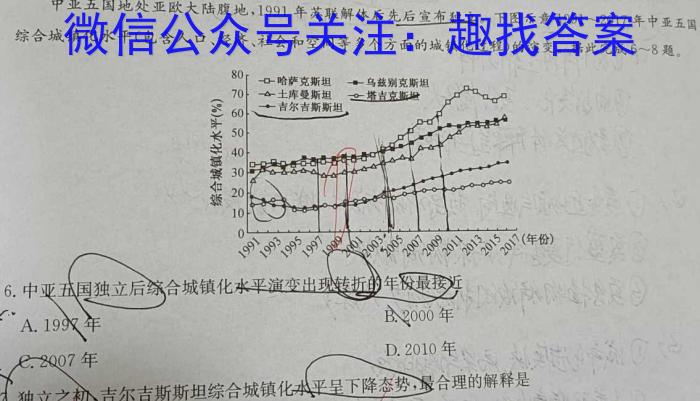 中亚五国地处亚欧大陆腹地,1991年苏联解体后先后宣布独立。下图示意1991~2017年中亚五国
综合城镇化水平(包含人口、经济、社会和空间等多个方面的城镇化过程)的演变。据此完成6~8题。
微信公众号关注:趣找答案
综合城镇化水平(%)
80
70
60
50
40
30
20
10
0
哈萨克斯坦 乌兹别克斯坦
土库曼斯坦 塔吉克斯坦
吉尔吉斯斯坦
1991 1993 1995 1997 1999 2001 2003 2005 2007 2009 2011 2013 2015 2017(年份)
6. 中亚五国独立后综合城镇化水平演变出现转折的年份最接近
A. 1997年 B. 2000年
C. 2007年 D. 2010年
独立之初,吉尔吉斯斯坦综合城镇化水平呈下降态势,最合理的解释是